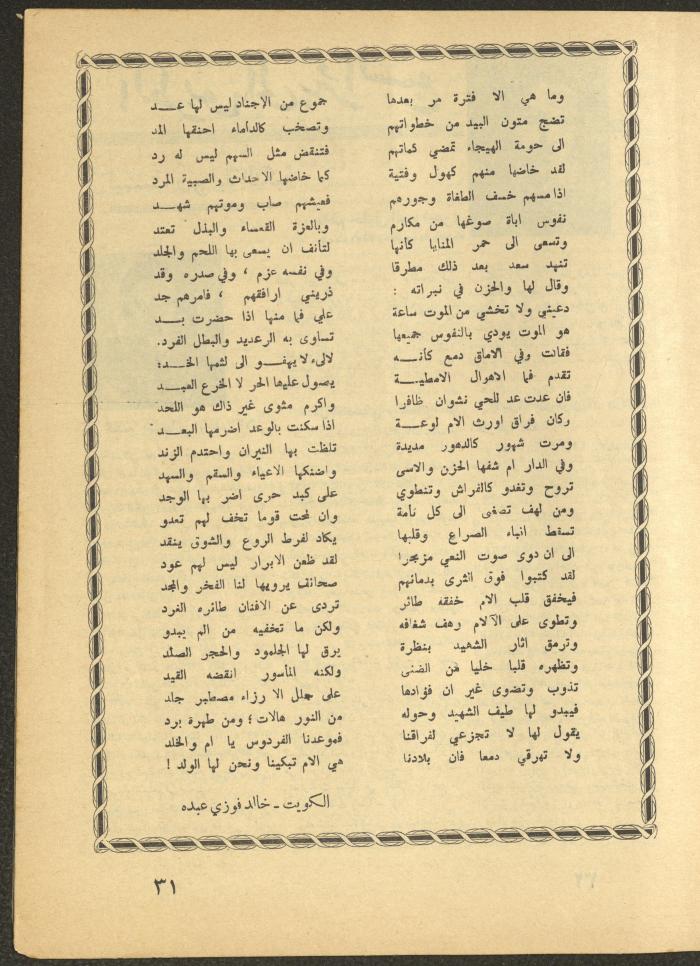 وما هي الا فترة مر بعدها جموع من الاجناد ليس لها عـــد
تضج متون البيد من خطواتهم وتصخب كالدأماء احنقها المد
الى حومة الهيجاء تمضي كماتهم فتنقض مثل السهم ليس له رد
لقد خاضها منهم كهول وفتية كما خاضها الاحداث والصبية المرد
اذا مسهم خسف الطغاة وجورهم فعيشهم صاب وموتهم شهــد
نفوس اباة صوغها من مكارم وبالعزة القعساء والبذل تعتد
وتسعى الى حمر المنايا كأنها لتأنف ان يسعى بها اللحم والجلد
تنهد سعد بعد ذلك مطرقا وفي نفسه عزم ، وفي صدره وقد
وقال لها والحزن في نبراته : ذريني ارافقهم ، فامرهم جد
دعيني ولا تخشي من الموت ساعة علي فما منها اذا حضرت بــد
هو الموت يودي بالنفوس جميعها تساوى به الرعديد والبطل الفرد.
فقالت وفي الاماق دمع كأنــه لآلىء لا يهفــو الى لثمها الخــد:
تقدم فما الاهوال الامطيــة يصول عليها الحر لا الخرع العبــد
فان عدت عد للحي نشوان ظافرا واكرم مثوى غير ذاك هو اللحد
وكان فراق اورث الام لوعــة اذا سكنت بالوعد اضرمها البعــد
ومرت شهور كالدهور مديدة تلظت بها النيران واحتدم الزند
وفي الدار ام شفها الحزن والاسى واضنكها الاعياء والسقم والسهد
تروح وتغدو كالفراش وتنطوي على كبد حرى اضر بها الوجد
ومن لهف تصغى الى كل نأمة وان لمحت قوما تخف لهم تعدو
تسقط انباء الصراع وقلبها يكاد لفرط الروع والشوق ينقد
الى ان دوى صوت النعي مزمجرا لقد ظعن الابرار ليس لهم عود
لقد كتبوا فوق الثرى بدمائهم صحائف يرويها لنا الفخر والمجد
فيخفق قلب الام خفقة طائر تردى عن الافنان طائره الغرد
وتطوى على الآلام رهف شغافه ولكن ما تخفيه من الم يبدو
وترمق اثار الشهيد بنظرة يرق لها الجلمود والحجر الصلد
وتظهره قلبا خليا من الضنى ولكنه المأسور انقضه القيد
تذوب وتضوى غير ان فؤادها على جلل الا رزاء مصطبر جلد
فيبدو لها طيف الشهيد وحوله من النور هالات ؛ ومن طهره برد
يقول لها لا تجزعي لفراقنا فموعدنا الفردوس يا ام والخلد
ولا تهرقي دمعا فان بلادنا هي الام تبكينا ونحن لها الولد !
الكويت - خالد فوزي عبده
٣١